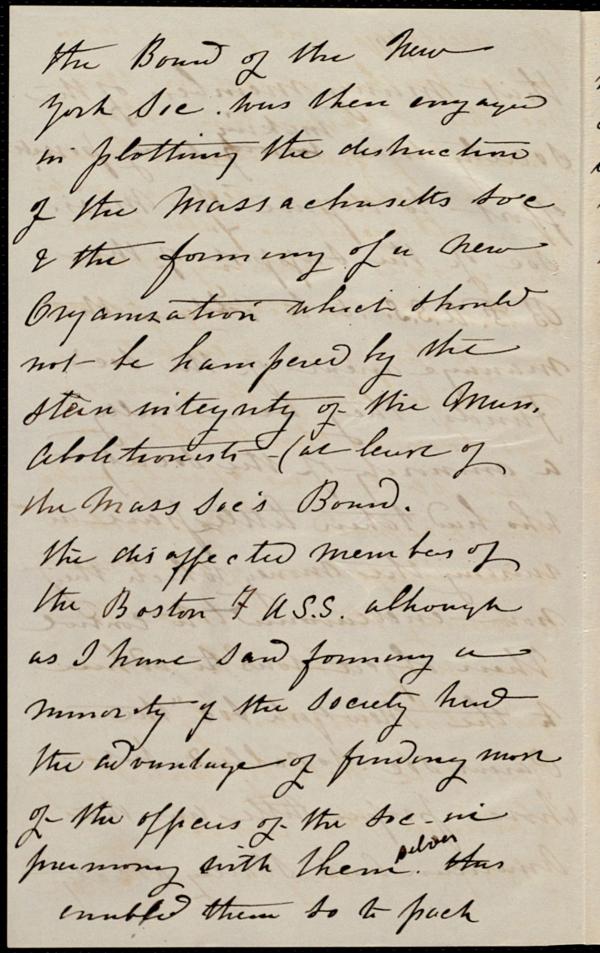 the Board of the New
York Soc. was then engaged
in plotting the destruction
of the Massachusetts Soc
& the forming of a new
Organization which should
not be hampered by the
stern integrity of the Mass.
Abolitionists - (at least of
the Mass Soc's Board.
the disaffected members of
the Boston F A.S.S. although
as I have said forming a
minority of the society had
the advantage of finding most
of the officers of the Soc - in
with them.
enabled them so to pack